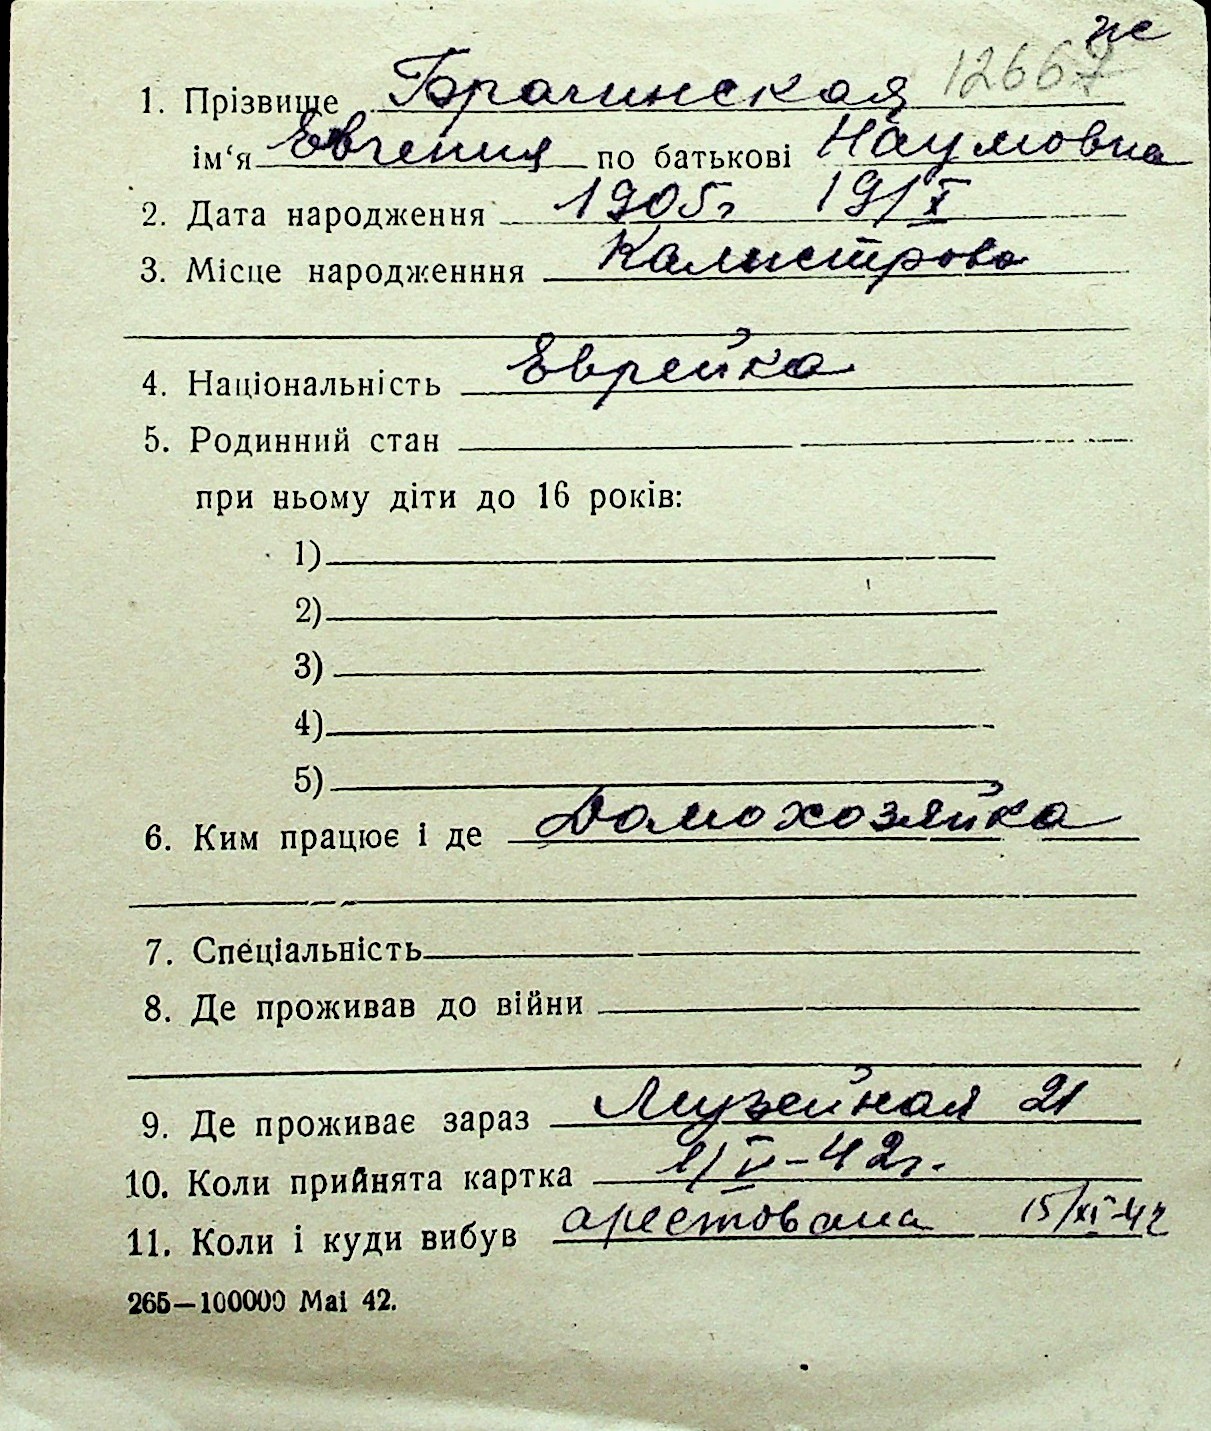 же
12667
1. Прізвище Брачинская
ім‘я Евгения по батькові Наумовна
2. Дата народження 1905г 19/X
3. Місце народженння Калистрова
4. Національність Еврейка
5. Родинний стан
при ньому діти до 16 років:
1)
2)
3)
4)
5)
6. Ким працює і де Домохозяйка
7. Спеціальність
8. Де проживав до війни
9. Де проживає зараз Музейная 21
10. Коли прийнята картка 1/V-42г.
11. Коли і куди вибув арестована 15/XI-42
265—100000 Mai 42.